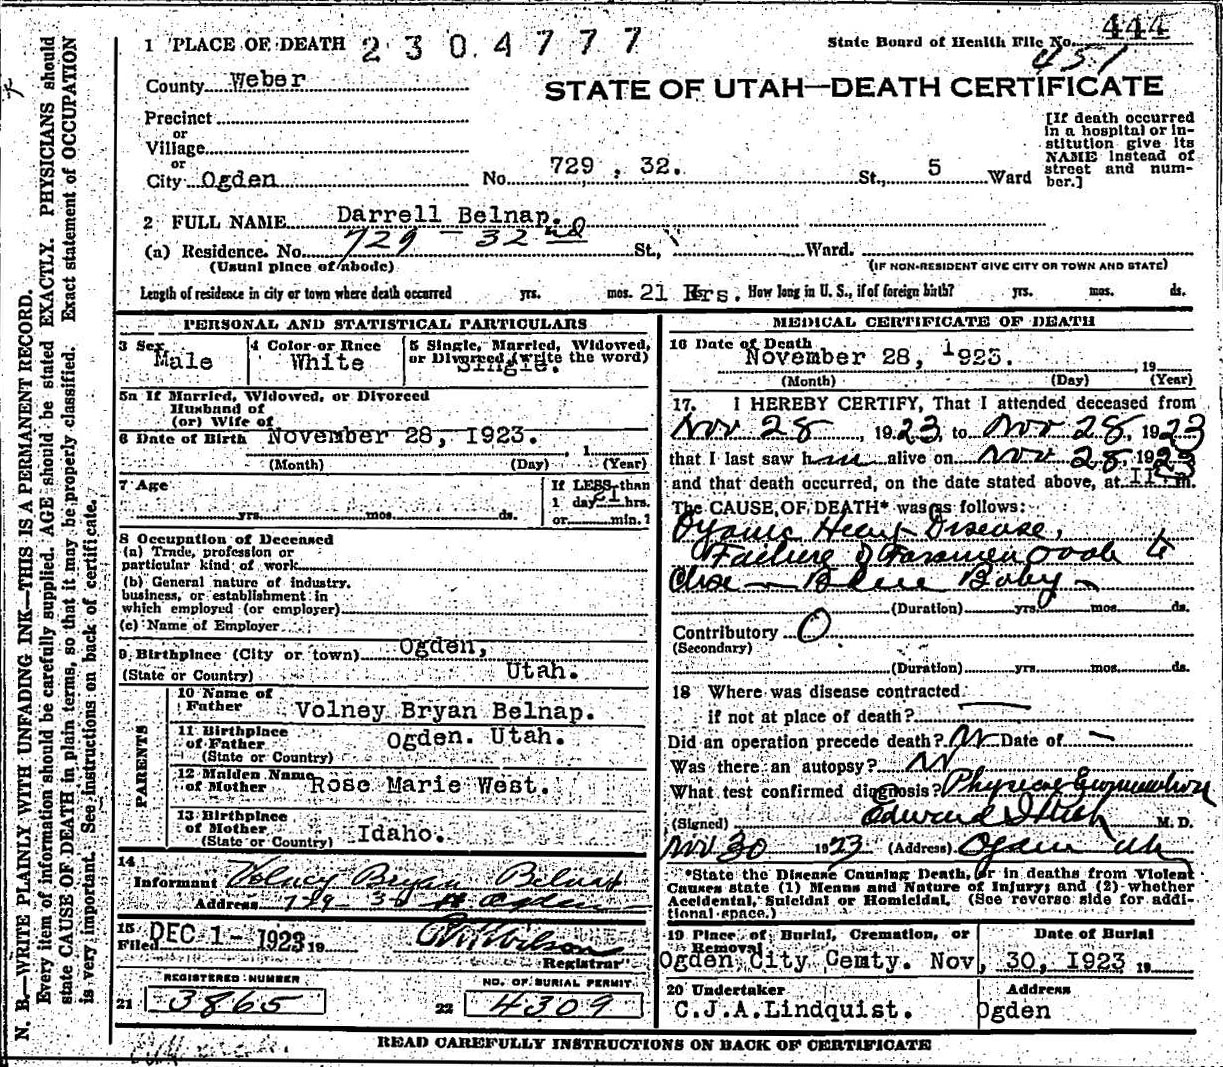 1 PLACE OF DEATH 2304777
State Board of Health File No. 444
451
County Weber
STATE OF UTAH—DEATH CERTIFICATE
Precinct
or
Village
or
City Ogden No. 729 . 32. St., 5 Ward
[If death occurred
in a hospital or in-
stitution give its
NAME instead of
street and num-
ber.]
2 FULL NAME Darrell Belnap.
(a) Residence. No. 729 - 32nd St., Ward.
(Usual place of abode) (IF NON-RESIDENT GIVE CITY OR TOWN AND STATE)
Length of residence in city or town where death occurred yrs. mos. 21 Hrs. How long in U. S., if of foreign birth? yrs. mos. ds.
PERSONAL AND STATISTICAL PARTICULARS
3 Sex Male
4 Color or Race White
5 Single, Married, Widowed,
or Divorced (write the word)
Single.
5a If Married, Widowed, or Divorced
Husband of
(or) Wife of
6 Date of Birth November 28, 1923. , 1
(Month) (Day) (Year)
7 Age
yrs. mos. ds.
If LESS than
1 day 21 hrs.
or min.?
8 Occupation of Deceased
(a) Trade, profession or
particular kind of work
(b) General nature of industry.
business, or establishment in
which employed (or employer)
(c) Name of Employer
9 Birthplace (City or town) Ogden,
(State or Country) Utah.
PARENTS
10 Name of
Father Volney Bryan Belnap.
11 Birthplace
of Father Ogden. Utah.
(State or Country)
12 Maiden Name
of Mother Rose Marie West.
13 Birthplace
of Mother
(State or Country) Idaho.
14
Informant Volney Bryan Belnap
Address 729 - 32 Ogden
15
Filed DEC 1 - 1923 19
Wilson
Registrar
REGISTERED NUMBER
21 3865
NO. OF BURIAL PERMIT
22 4309
MEDICAL CERTIFICATE OF DEATH
16 Date of Death
November 28, 1923. , 19
(Month) (Day) (Year)
17. I HEREBY CERTIFY, That I attended deceased from
Nov 28 , 1923, to Nov 28, 1923
that I last saw him alive on Nov 28, 1923
and that death occurred, on the date stated above, at 11 m.
The CAUSE OF DEATH* was as follows:
Organic Heart Disease,
Failure of Foramen Ovale to
Close - Blue Baby -
(Duration) yrs. mos. ds.
Contributory O
(Secondary)
(Duration) yrs. mos. ds.
18 Where was disease contracted
if not at place of death?
Did an operation precede death? No Date of -
Was there an autopsy? No
What test confirmed diagnosis? Physical Examination
(Signed) Edward I Rich M. D.
Nov 30 1923 (Address) Ogden Utah
*State the Disease Causing Death, or in deaths from Violent
Causes state (1) Means and Nature of Injury; and (2) whether
Accidental, Suicidal or Homicidal. (See reverse side for addi-
tional space.)
19 Place of Burial, Cremation, or
Removal
Date of Burial
Ogden City Cemty. Nov, 30, 1923 19
20 Undertaker Address
C.J.A.Lindquist. Ogden
READ CAREFULLY INSTRUCTIONS ON BACK OF CERTIFICATE
N. B.—WRITE PLAINLY WITH UNFADING INK—THIS IS A PERMANENT RECORD.
Every item of information should be carefully supplied. AGE should be stated EXACTLY. PHYSICIANS should
state CAUSE OF DEATH in plain terms, so that it may be properly classified. Exact statement of OCCUPATION
is very important. See instructions on back of certificate.